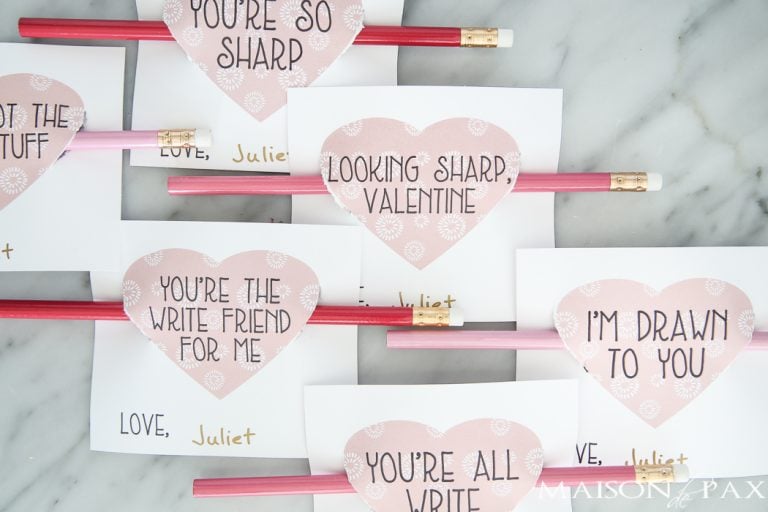 YOU'RE SO
SHARP
LOVE, Juliet
OT THE
TUFF
LOOKING SHARP,
VALENTINE
Juliet
YOU'RE THE
WRITE FRIEND
FOR ME
LOVE, Juliet
I'M DRAWN
TO YOU
VE, Juliet
YOU'RE ALL
WRITE
MAISON de PAX